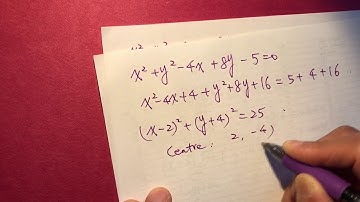 x² + y² - 4x + 8y - 5 = 0
x² - 4x + 4 + y² + 8y + 16 = 5 + 4 + 16
(x - 2)² + (y + 4)² = 25
Centre : 2, -4)